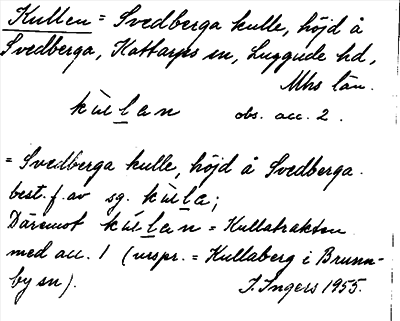 Kullen = Svedberga kulle, höjd å
Svedberga, Kattarps sn, Luggude hd,
Mhs län.
kùlan obs. acc. 2.
= Svedberga kulle, höjd å Svedberga.
best. f. av sg. kùla;
Däremot kúlan = Kullatrakten
med acc. 1 (urspr. = Kullaberg i Brunn-
by sn). I. Ingers 1955.